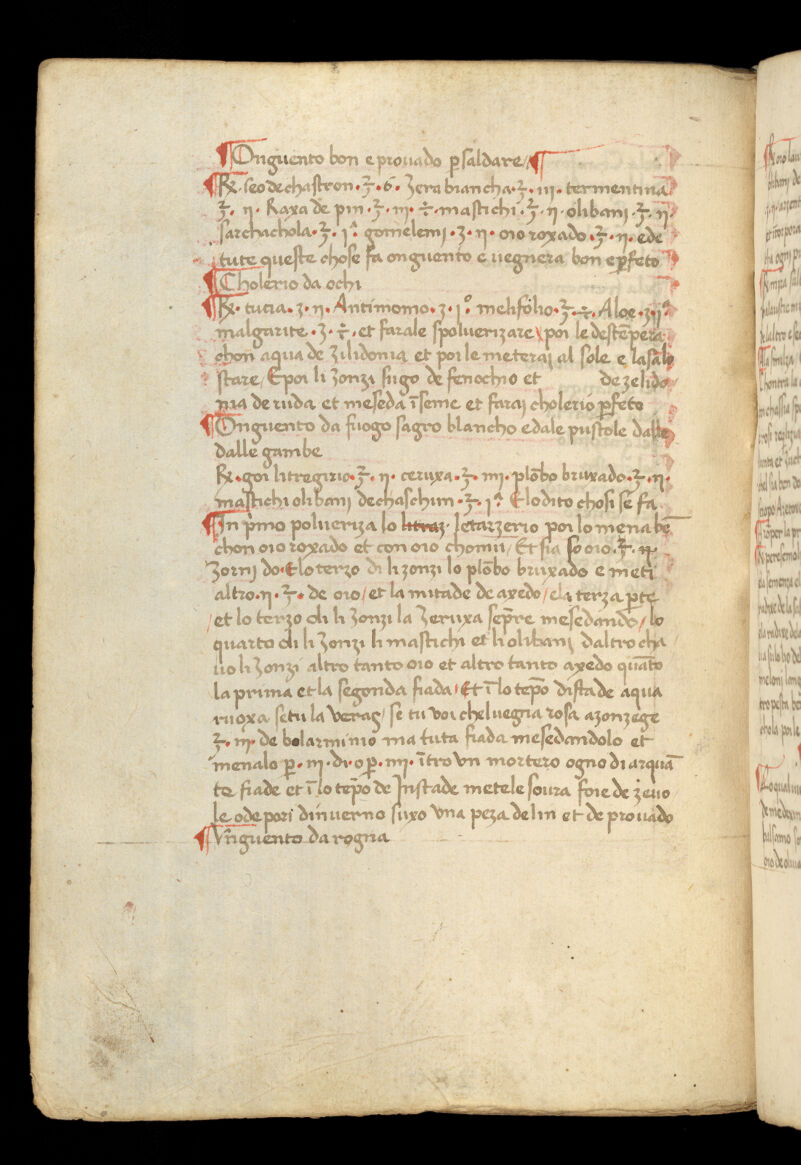 ¶ Onguento bon e prouado p̲ saldare / ¶
¶ ℞ · seo de chastron · ℥ · 6 · Zera biancha · ℥ · iii · termentina
℥ · ii · Raxa de pin · ℥ · iii · ÷ · mastichi · ℥ · ii · olibani · ℥ · ii ·
sarchachola · ℥ · jª gomelemj · ʒ · ii · oio roxado · ℥ · ii · e de
tute queste chose fa onguento e uegnera bon e p̲feto
¶ Cholerio da ochi
¶ ℞ · tucia · ʒ · ii · Antimonio · ʒ · jº melifolio · ℥ · ÷ · Aloe · ʒ · jª
malgarite · ʒ · ÷ · et farale spoluerizare / poi le destēpera
chon aqua de Zilidonia et poi le meteraj al sole e lasale
stare / E poi li Zonzi sugo de fenochio et de zelido
nia de ruda et meseda īseme et faraj cholerio p̲feto
¶ Onguento da fuogo sagro blancho e dale pustole dalle
dalle gambe
℞ · goi litregirio · ℥ · ii · ceruxa · ℥ · iiij · plōbo bruxado · ℥ · ii ·
mastichi olibanj de chaschun · ℥ · jª E lo dito chosi se fa
¶ In p̄mo polueriza lo litraz · letarzerio poi lo mena bē
chon oio roxado et con oio chomū / Et sia so oio · ℥ · ii ·
Zornj do · E lo terzo di li zonzi lo plōbo bruxado e meti
altro · ii · ℥ · de oio / et la mitade de axedo / e la terza p̲te
/ et lo terzo di li Zonzi la Zeruxa sep̄re mesedando / lo
quarto di li Zonzi li mastichi et li olibanj daltro cha
uo li Zonzi altro tanto oio et altro tanto axedo quāto
la prima et la segonda fiada / Et ī lo tēpo distade aqua
ruoxa se tu la veraj / se tu voi che luegna rosa azonzege
℥ · iii · de bolarminio ma tuta fiada mesedandolo et
menalo p̲ · iii · di · o p̲ · iiij · ītro vn mortero ogno di arquā
te fiade et ī lo tēpo de Instade metele soura foie de zeuo
le o de pori dinuerno suxo vna peza de lin et de prouado
¶ Vn̄guento da rogna